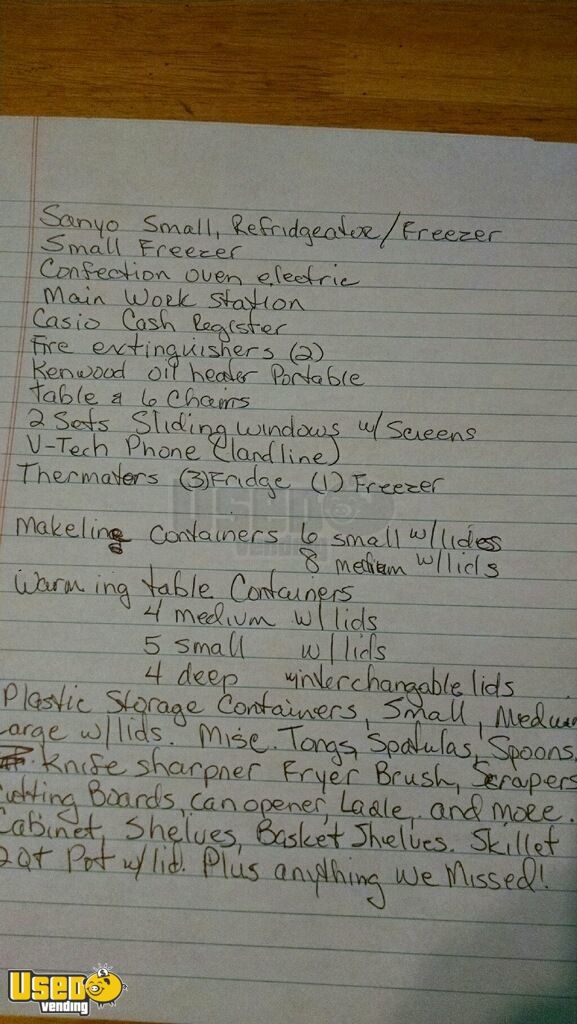 Sanyo Small, Refridgeator/Freezer
Small Freezer
Confection oven electric
Main Work Station
Casio Cash Register
Fire extinguishers (2)
Kenwood oil heater Portable
table & 6 Chairs
2 Sets Sliding windows w/ Screens
V-Tech Phone (landline)
Thermaters (3) Fridge (1) Freezer
Makeling Containers 6 small w/lides
8 medium w/lids
Warming table Containers
4 medium w/lids
5 small w/lids
4 deep w/interchangable lids
Plastic Storage Containers, Small, Medium
Large w/lids. Misc. Tongs, Spatulas, Spoons,
Knife Sharpner Fryer Brush, Scrapers
Cutting Boards, can opener, Ladle, and more.
Cabinet, Shelves, Basket Shelves. Skillet
2 Qt Pot w/lid. Plus anything we Missed!
Used Vending
Used Vending